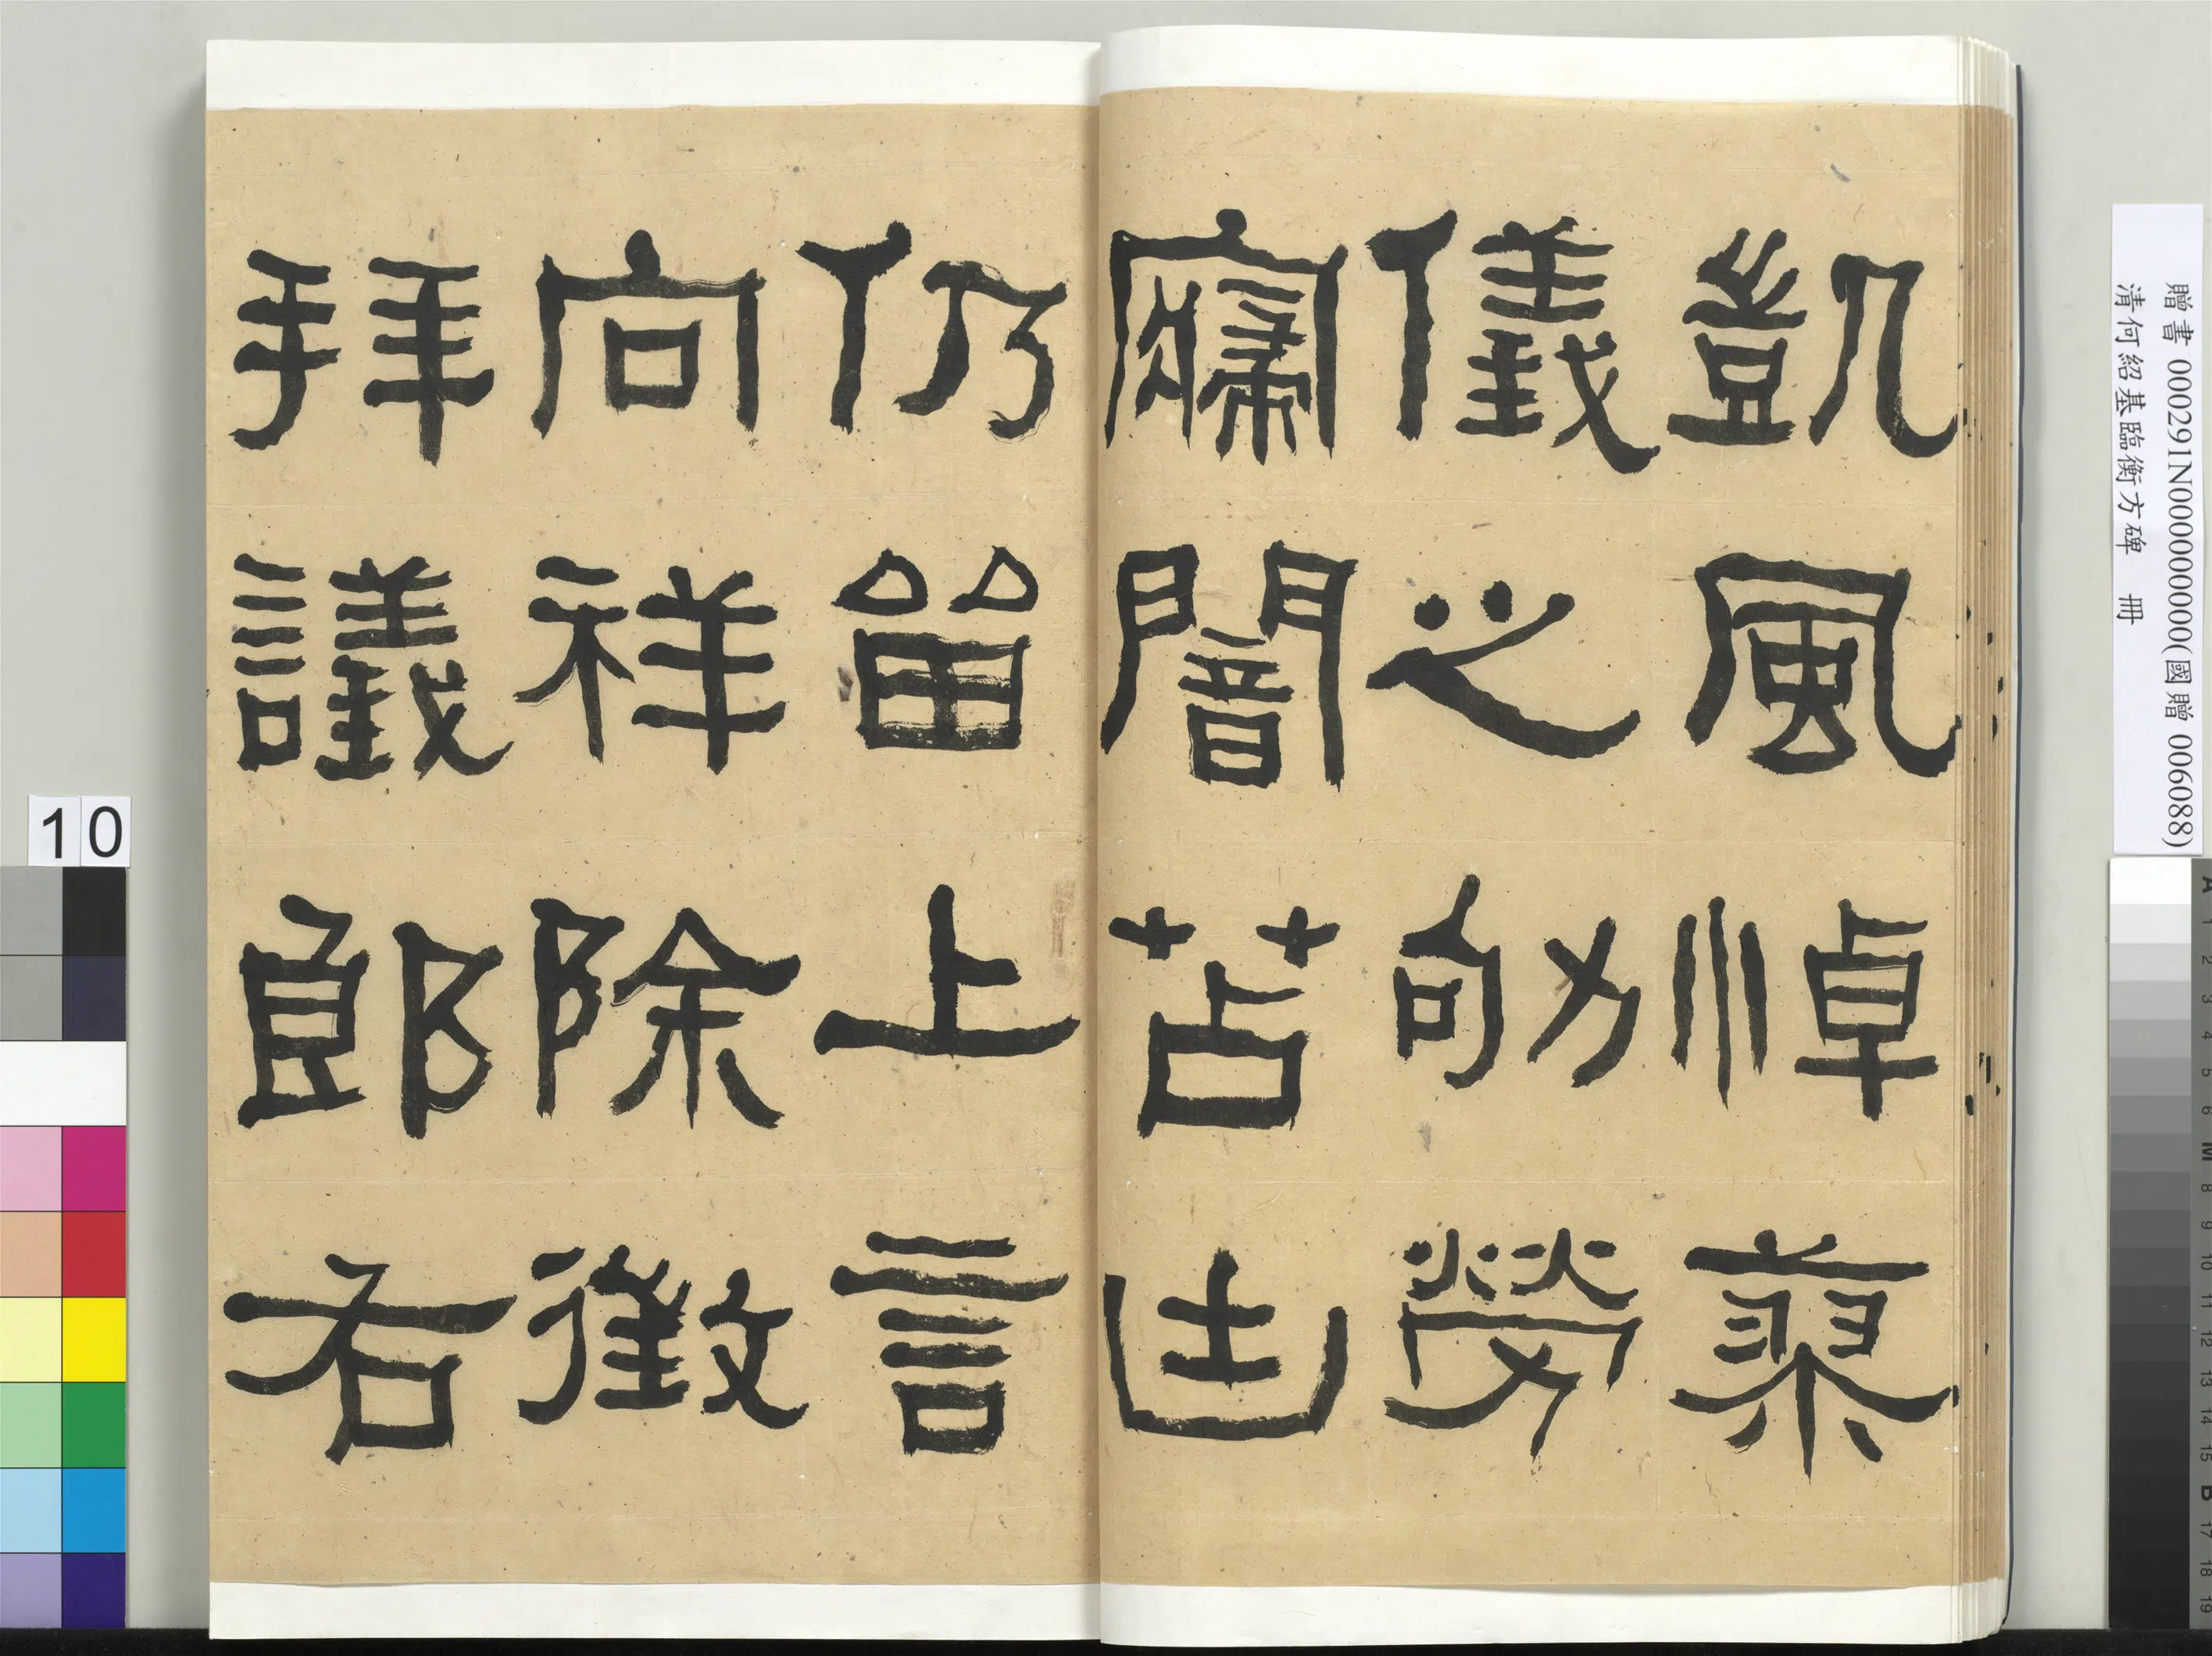 凱風悼蓼
儀之劬勞
寢闇苫凷
仍留上言
向祥除徵
拜議郎右
贈書 000291N000000000(國贈 006088)
清何紹基臨衡方碑 冊
10
A 1 2 3 4 5 6 M 8 9 10 11 12 13 14 15 B 17 18 19